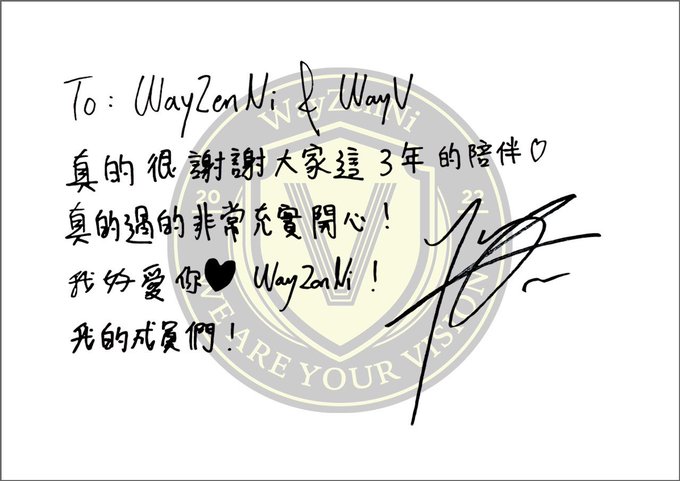 To: WayZenNi & WayV
真的很謝謝大家這3年的陪伴♡
真的過的非常充實開心！
我好愛你♥ WayZenNi！
我的成員們！
WayZenNi
20 22
WE ARE YOUR VISION
V